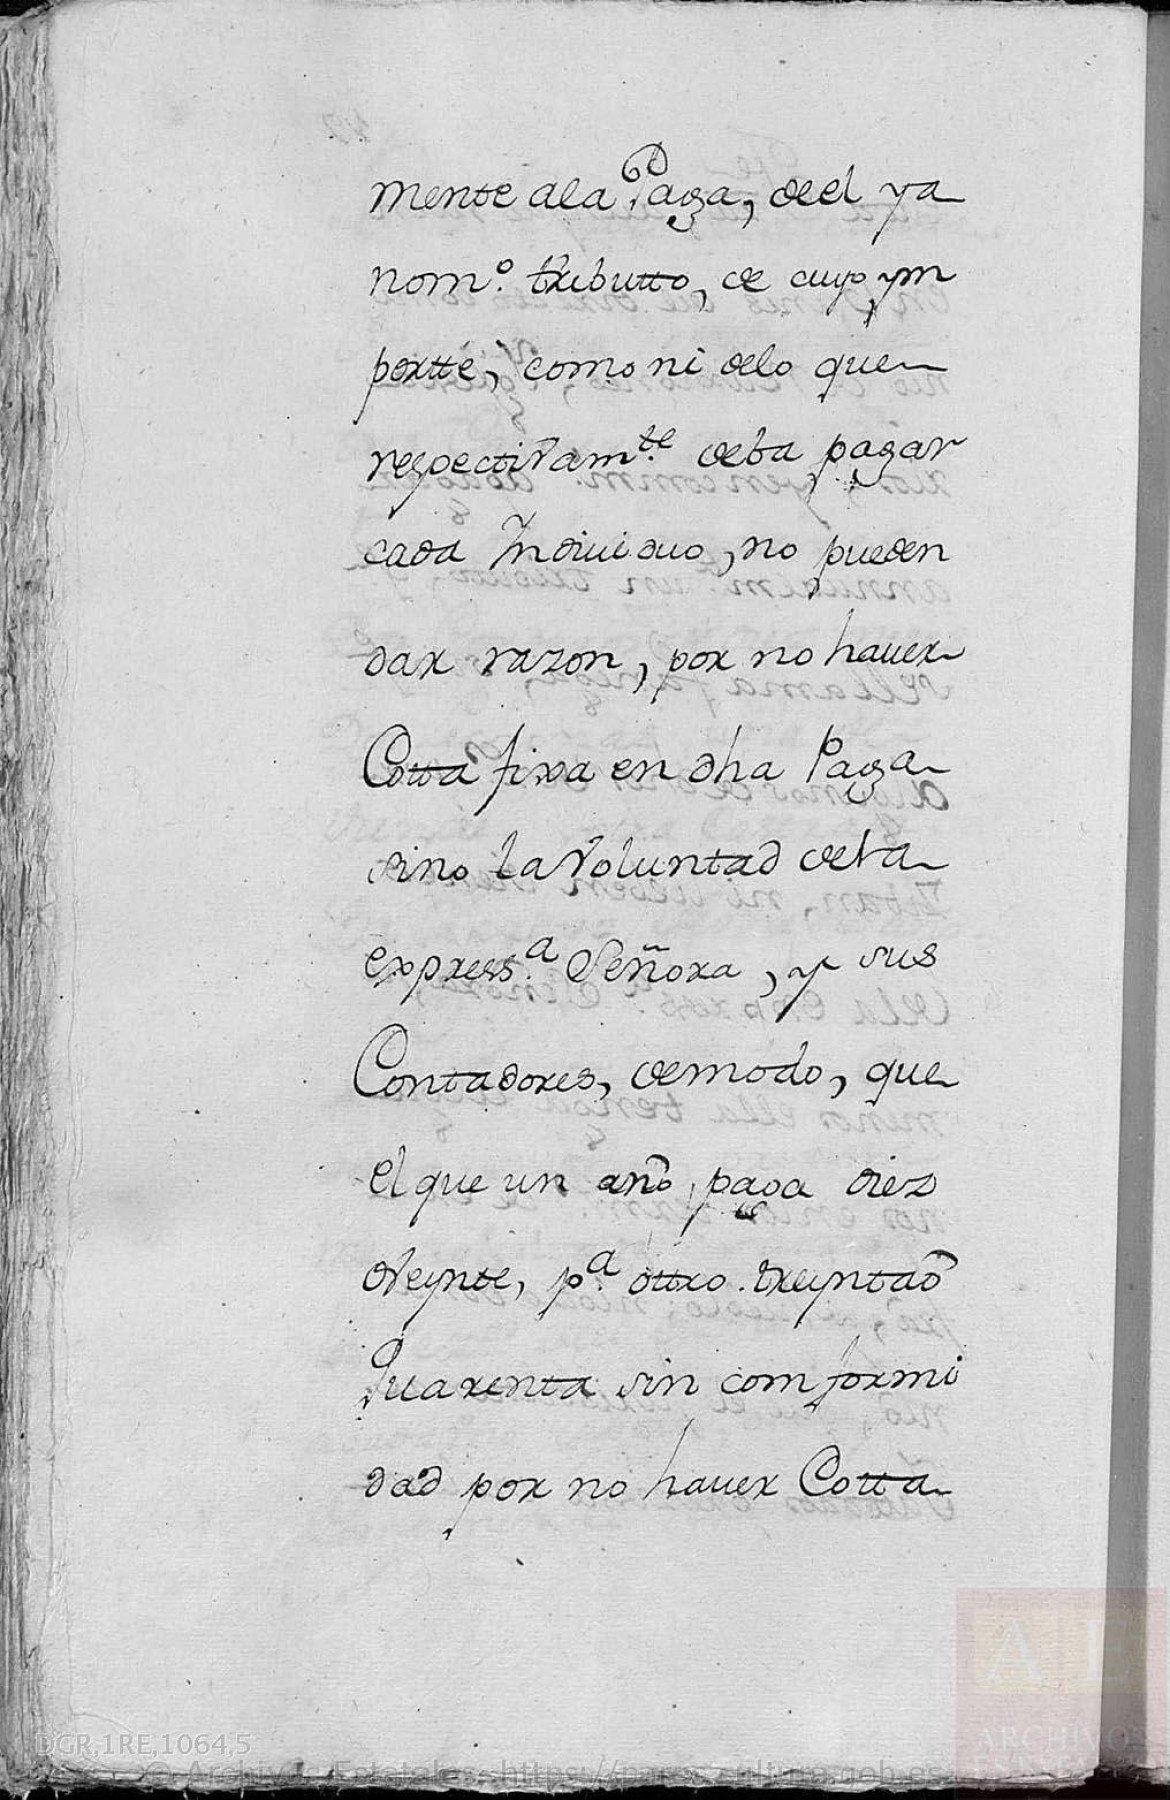 mente ala Paga, del ya
nom.º tributto, de cuyo ym
portte, como ni delo que
respectivam.te deba pagar
cada Yndiuiduo, no pueden
dar razon, por no hauer
Cotta fixa en dha Paga
sino la Voluntad deta
express.a Señora, y sus
Contadores, demodo, que
el que un año paga diez
oVeynte, p.a ottro treyntaó
Quarenta sin comformi
dad por no hauer Cotta
DGR,1RE,1064,5
© Archivos Estatales, https://pares.cultura.gob.es
AE
ARCHIVOS
ESTATALES